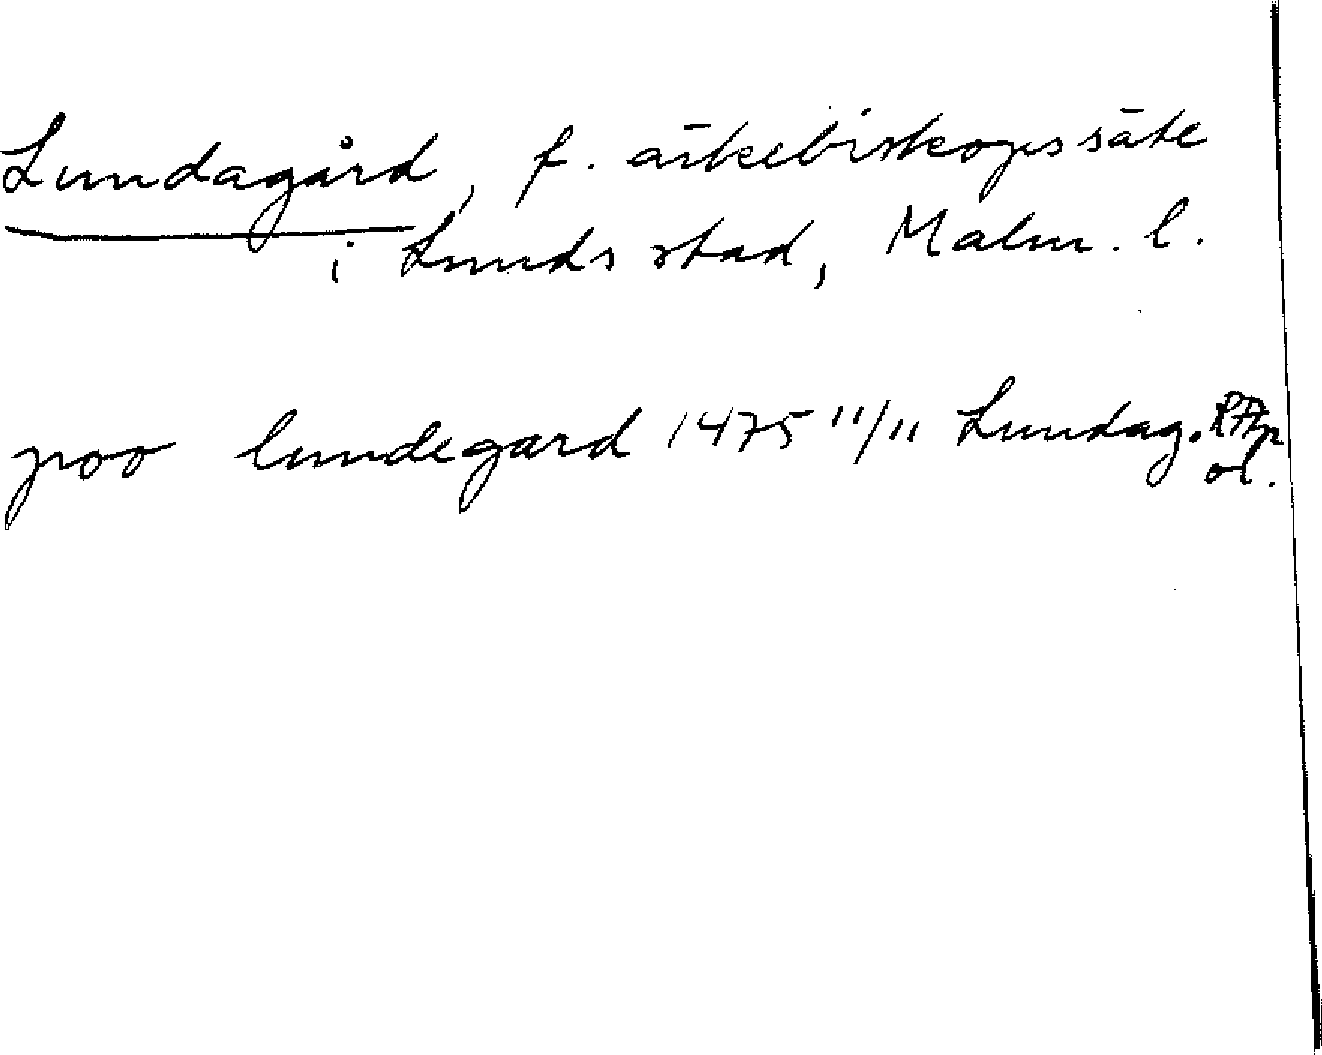 Lundagård, f. ärkebiskopssäte
i Lunds stad, Malm. l.
poo lundegard 1475 11/11 Lundag. RAp
or.